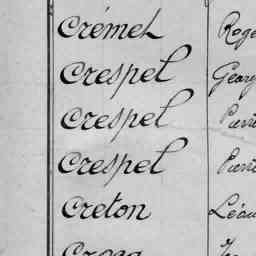 Crémel Roge
Crespel Georg
Crespel Pierre
Crespel Pierre
Creton Léon